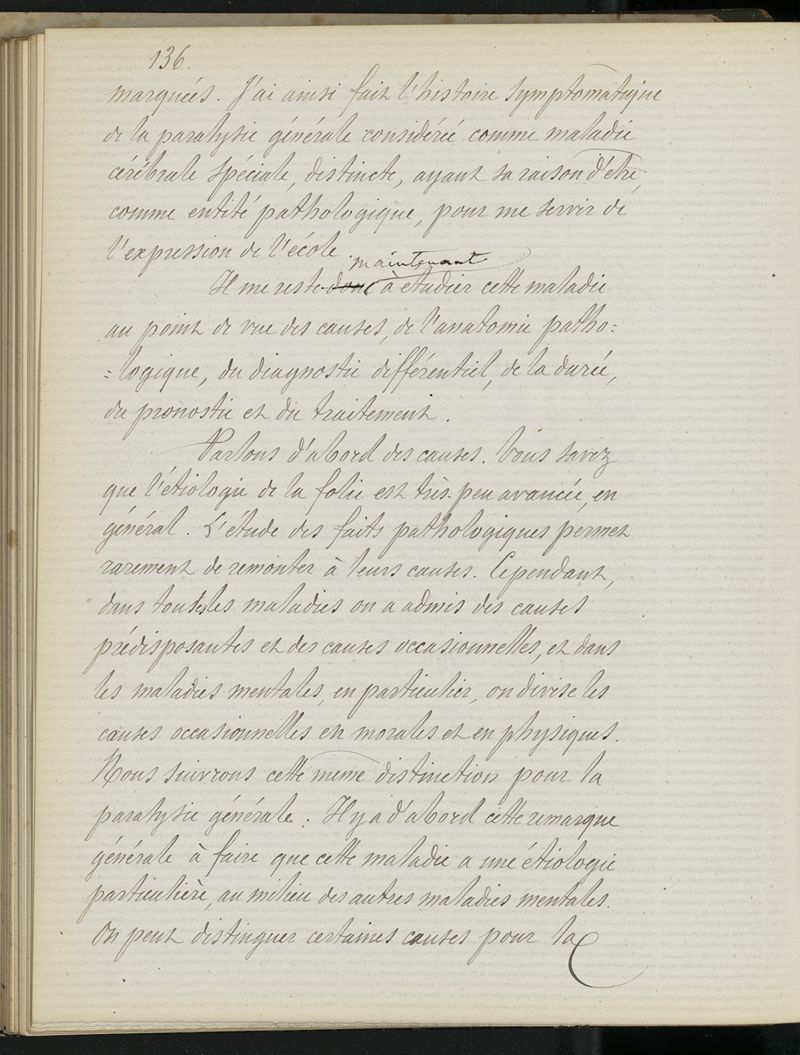 136.
marquées. J'ai ainsi fait l'histoire symptomatique
de la paralysie générale considérée comme maladie
cérébrale spéciale, distincte, ayant sa raison d'être,
comme entité pathologique, pour me servir de
l'expression de l'école.
maintenant
Il me reste donc à étudier cette maladie
au point de vue des causes, de l'anatomie patho=
=logique, du diagnostic différentiel, de la durée,
du pronostic et du traitement.
Parlons d'abord des causes. Vous savez
que l'étiologie de la folie est très peu avancée, en
général. L'étude des faits pathologiques permet
rarement de remonter à leurs causes. Cependant,
dans toutes les maladies on a admis des causes
prédisposantes et des causes occasionnelles, et dans
les maladies mentales, en particulier, on divise les
causes occasionnelles en morales et en physiques.
Nous suivrons cette même distinction pour la
paralysie générale. Il y a d'abord cette remarque
générale à faire que cette maladie a une étiologie
particulière, au milieu des autres maladies mentales.
On peut distinguer certaines causes pour la